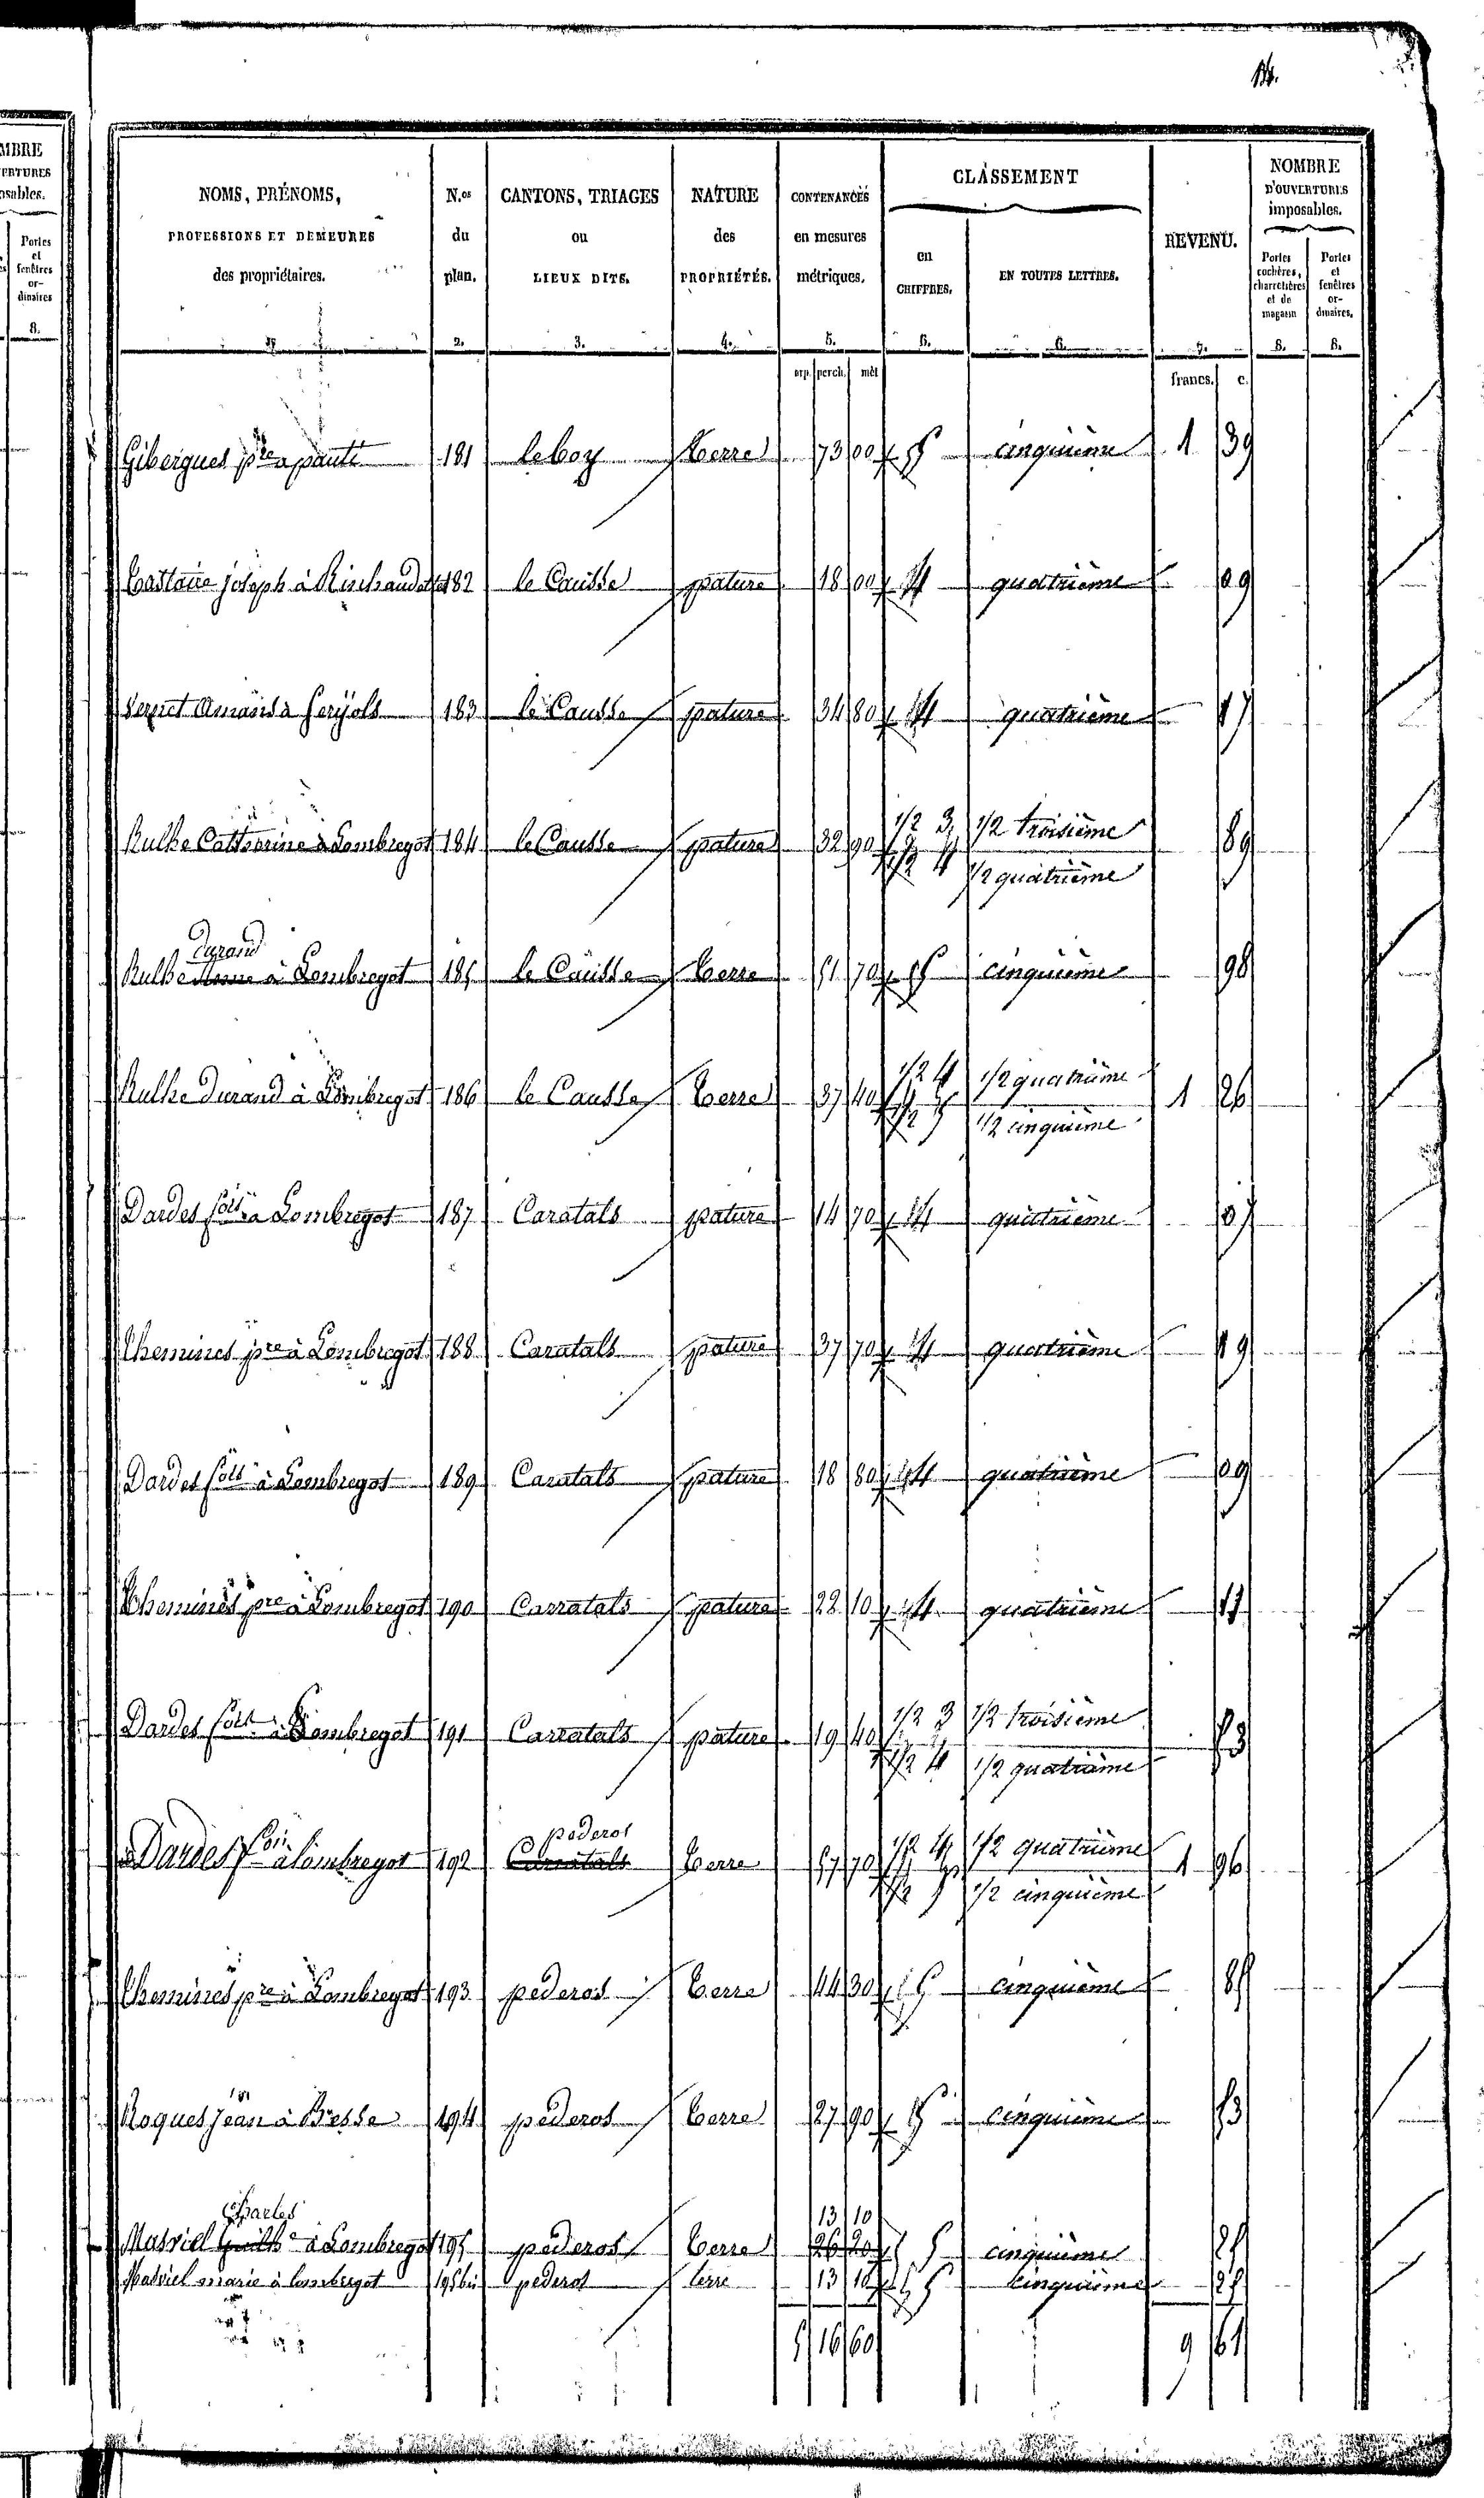 14.
MBRE
ERTURES
osables.
Portes
et
fenêtres
or-
dinaires
8.
NOMS, PRÉNOMS,
PROFESSIONS ET DEMEURES
des propriétaires.
N.os
du
plan.
2.
CANTONS, TRIAGES
ou
LIEUX DITS.
3.
NATURE
des
PROPRIÉTÉS.
4.
CONTENANCES
en mesures
métriques.
5.
CLASSEMENT
en
CHIFFRES.
6.
EN TOUTES LETTRES.
6.
REVENU.
7.
NOMBRE
D'OUVERTURES
imposables.
Portes
cochères,
charretières
et de
magasin
8.
Portes
et
fenêtres
or-
dinaires.
8.
arp. perch. mèt
francs. c.
Gibergues pre 181 le boy terre 73 00 5 cinquième 1 39
joseph à 182 le Causse pature 18 00 4 quatrième 09
Vernet à 183 le Causse pature 34 80 4 quatrième 17
Rulhe Catherine à Lombregot 184 le Causse pature 32 90 1/2 3 1/2 troisième 89
1/2 4 1/2 quatrième
Durand
Rulhe à Lombregot 185 le Causse terre 51 70 5 cinquième 98
Rulhe Durand à Lombregot 186 le Causse terre 37 40 1/2 4 1/2 quatrième 1 26
1/2 5 1/2 cinquième
Dardes à Lombregot 187 Caratals pature 14 70 4 quatrième 07
Chemines pre à Lombregot 188 Caratals pature 37 70 4 quatrième 19
Dardes à Lombregot 189 Caratals pature 18 80 4 quatrième 09
Chemines pre à Lombregot 190 Carratals pature 22 10 4 quatrième 11
Dardes à Lombregot 191 Carratals pature 19 40 1/2 3 1/2 troisième 53
1/2 4 1/2 quatrième
pederos
Dardes à Lombregot 192 Carratals terre 57 70 1/2 4 1/2 quatrième 1 96
1/2 5 1/2 cinquième
Chemines pre à Lombregot 193 pederos terre 44 30 5 cinquième 85
Roques jean à Besse 194 pederos terre 27 90 5 cinquième 53
Charles 13 10
Masviel à Lombregot 195 pederos terre 26 20 5 cinquième 25
Masviel marie à Lombregot 195 bis pederos terre 13 10 5 cinquième 25
5 16 60 9 61